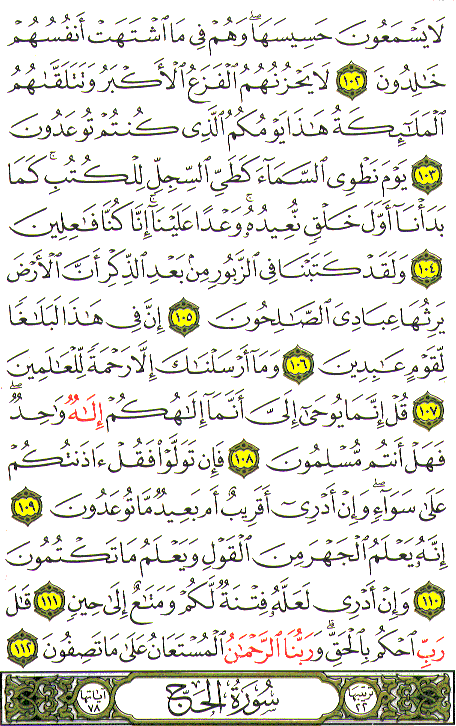 لَا يَسْمَعُونَ حَسِيسَهَا ۖ وَهُمْ فِي مَا اشْتَهَتْ أَنفُسُهُمْ
خَالِدُونَ ١٠٢ لَا يَحْزُنُهُمُ الْفَزَعُ الْأَكْبَرُ وَتَتَلَقَّاهُمُ
الْمَلَائِكَةُ هَـٰذَا يَوْمُكُمُ الَّذِي كُنتُمْ تُوعَدُونَ
١٠٣ يَوْمَ نَطْوِي السَّمَاءَ كَطَيِّ السِّجِلِّ لِلْكُتُبِ ۚ كَمَا
بَدَأْنَا أَوَّلَ خَلْقٍ نُّعِيدُهُ ۚ وَعْدًا عَلَيْنَا ۚ إِنَّا كُنَّا فَاعِلِينَ
١٠٤ وَلَقَدْ كَتَبْنَا فِي الزَّبُورِ مِن بَعْدِ الذِّكْرِ أَنَّ الْأَرْضَ
يَرِثُهَا عِبَادِيَ الصَّالِحُونَ ١٠٥ إِنَّ فِي هَـٰذَا لَبَلَاغًا
لِّقَوْمٍ عَابِدِينَ ١٠٦ وَمَا أَرْسَلْنَاكَ إِلَّا رَحْمَةً لِّلْعَالَمِينَ
١٠٧ قُلْ إِنَّمَا يُوحَىٰ إِلَيَّ أَنَّمَا إِلَـٰهُكُمْ إِلَـٰهٌ وَاحِدٌ ۖ
فَهَلْ أَنتُم مُّسْلِمُونَ ١٠٨ فَإِن تَوَلَّوْا فَقُلْ ءَاذَنتُكُمْ
عَلَىٰ سَوَاءٍ ۖ وَإِنْ أَدْرِي أَقَرِيبٌ أَم بَعِيدٌ مَّا تُوعَدُونَ ١٠٩
إِنَّهُ يَعْلَمُ الْجَهْرَ مِنَ الْقَوْلِ وَيَعْلَمُ مَا تَكْتُمُونَ
١١٠ وَإِنْ أَدْرِي لَعَلَّهُ فِتْنَةٌ لَّكُمْ وَمَتَاعٌ إِلَىٰ حِينٍ ١١١ قَالَ
رَبِّ احْكُم بِالْحَقِّ ۗ وَرَبُّنَا الرَّحْمَـٰنُ الْمُسْتَعَانُ عَلَىٰ مَا تَصِفُونَ ١١٢
ترتيبها ٢٢ سُورَةُ الْحَجِّ آياتها ٧٨